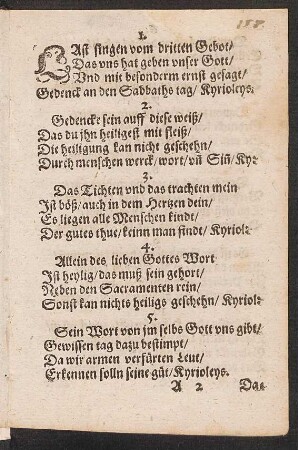 158.
1.
LAst singen vom dritten Gebot/
Das vns hat geben vnser Gott/
Vnd mit besonderm ernst gesagt/
Gedenck an den Sabbaths tag/ Kyrioleys.
2.
Gedencke sein auff diese weiß/
Das du jhn heiligest mit fleiß/
Die heiligung kan nicht geschehn/
Durch menschen werck/ wort/ vñ Siñ/ Ky⸗
3.
Das Tichten vnd das trachten mein
Ist böß/ auch in dem Hertzen dein/
Es liegen alle Menschen kindt/
Der gutes thue/ keinn man findt/ Kyriol⸗
4.
Allein des lieben Gottes Wort
Ist heylig/ das muß sein gehort/
Neben den Sacramenten rein/
Sonst kan nichts heiligs geschehn/ Kyriol⸗
5.
Sein Wort von jm selbs Gott vns gibt/
Gewissen tag dazu bestimpt/
Da wir armen verfürten Leut/
Erkennen solln seine güt/ Kyrioleys.
A 2 Das